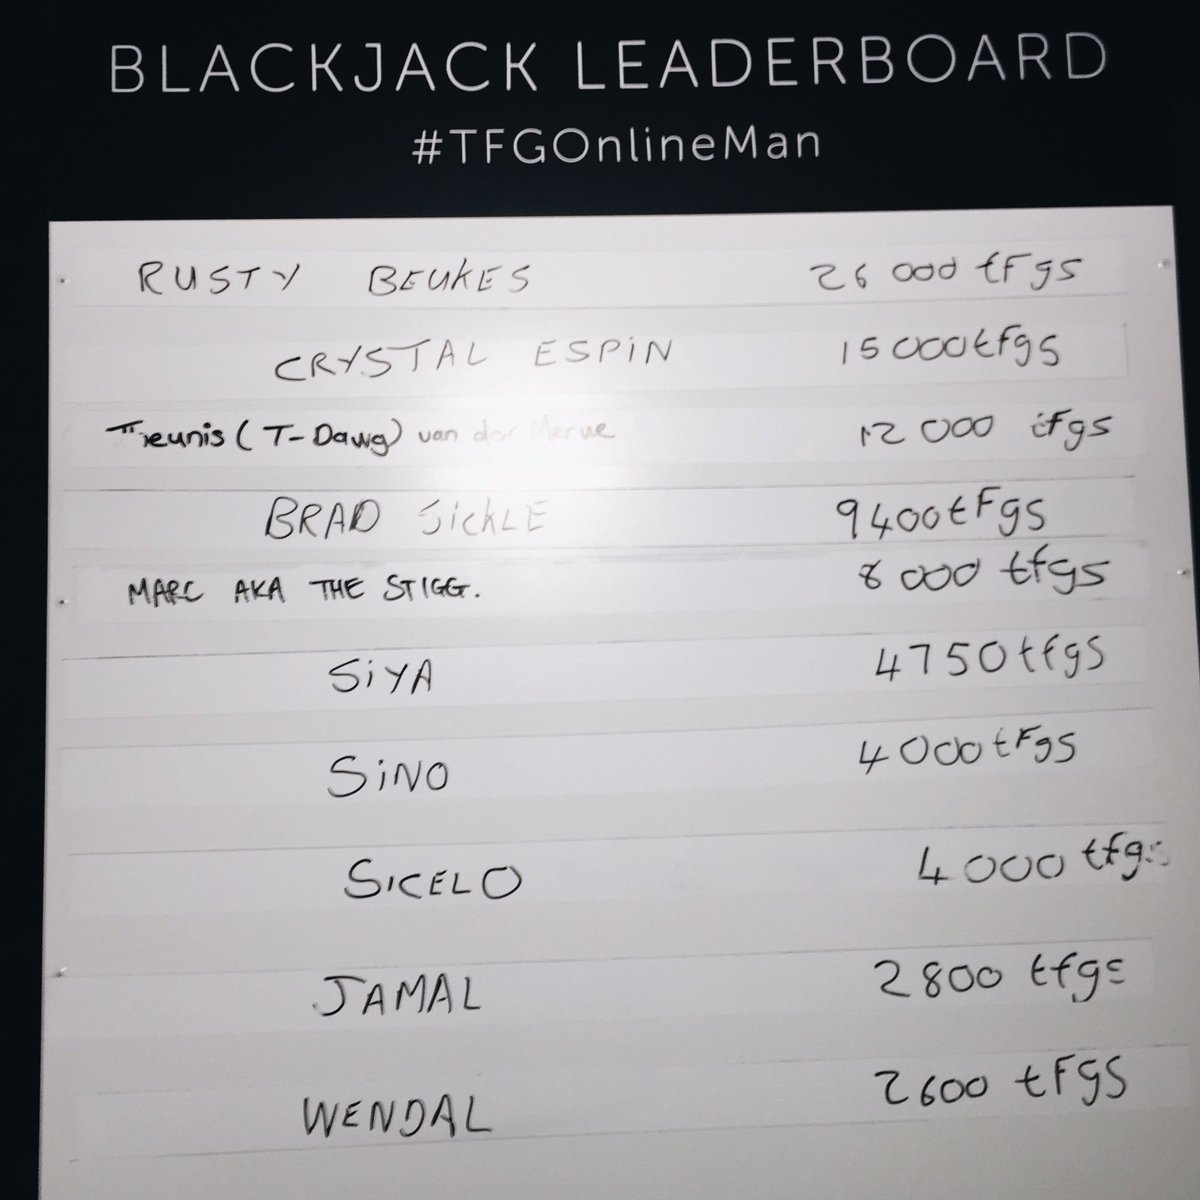 BLACKJACK LEADERBOARD
#TFGOnlineMan
RUSTY BEUKES 26 000 tFgs
CRYSTAL ESPiN 15 000tfgs
Treunis (T-Dawg) van der Merwe 12 000 tfgs
BRAD SickLE 9400tFgs
MARC AKA THE STIGG. 8 000 tfgs
SiYA 4750tfgs
SiNO 4000tFgs
SICELO 4000 tfgs
JAMAL 2800 tfgs
WENDAL 2600 tFgs